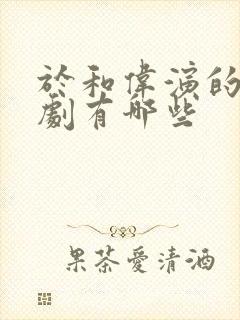 於和偉演的
劇有哪些
果茶愛清酒